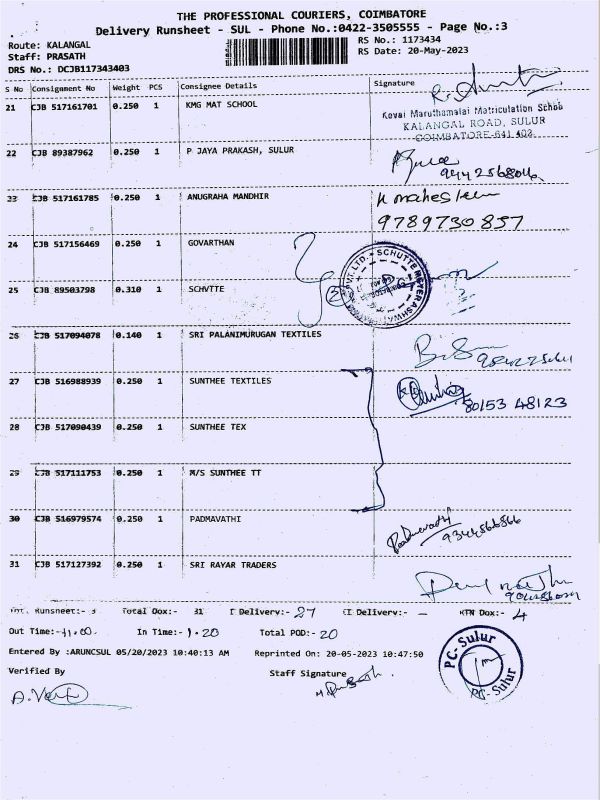 THE PROFESSIONAL COURIERS, COIMBATORE
Delivery Runsheet - SUL - Phone No.:0422-3505555 - Page No.:3
Route: KALANGAL
RS No.: 1173434
Staff: PRASATH
RS Date: 20-May-2023
DRS No.: DCJB117343403
S No Consignment No Weight PCS Consignee Details Signature
21 CJB 517161701 0.250 1 KMG MAT SCHOOL
Kovai Maruthamalai Matriculation School
KALANGAL ROAD, SULUR
COIMBATORE-641 402
22 CJB 89387962 0.250 1 P JAYA PRAKASH, SULUR
23 CJB 517161785 0.250 1 ANUGRAHA MANDHIR
9789730857
24 CJB 517156469 0.250 1 GOVARTHAN
25 CJB 89503798 0.310 1 SCHVTTE
26 CJB 517094078 0.140 1 SRI PALANIMURUGAN TEXTILES
27 CJB 516988939 0.250 1 SUNTHEE TEXTILES
80153 48123
28 CJB 517090439 0.250 1 SUNTHEE TEX
29 CJB 517111753 0.250 1 M/S SUNTHEE TT
30 CJB 516979574 0.250 1 PADMAVATHI
Padmavathi
9344566866
31 CJB 517127392 0.250 1 SRI RAYAR TRADERS
Tot. Runsheet:- 3 Total Dox:- 31 T Delivery:- 27 CI Delivery:- - RTN Dox:- 4
Out Time:- 11.00. In Time:- 1.20 Total POD:- 20
Entered By :ARUNCSUL 05/20/2023 10:40:13 AM Reprinted On: 20-05-2023 10:47:50
Verified By
Staff Signature
PC-Sulur
PC-Sulur